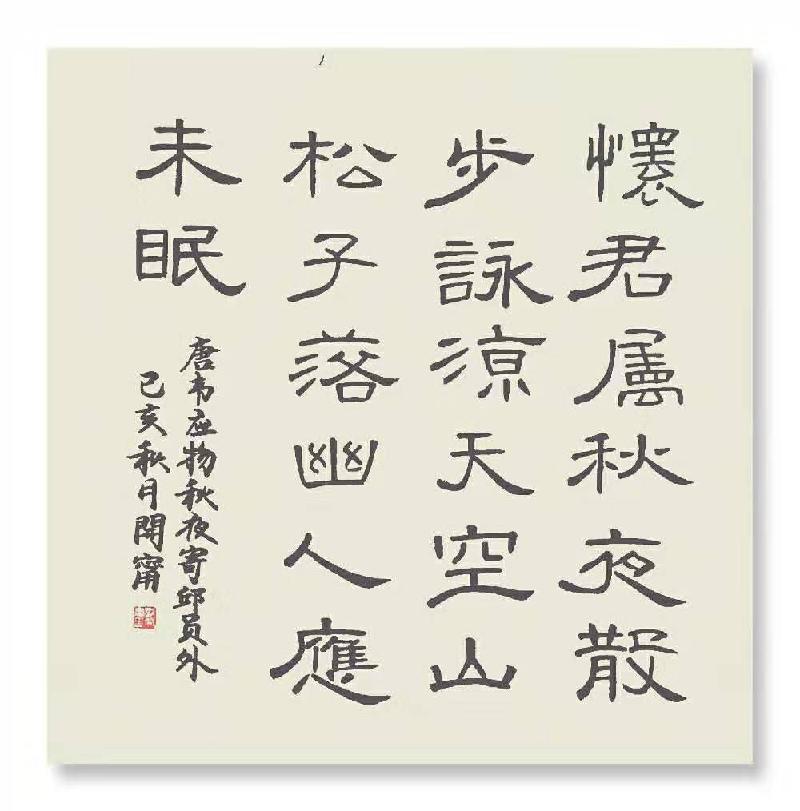 懷君屬秋夜散
步詠涼天空山
松子落幽人應
未眠
唐韦应物秋夜寄邱员外
己亥秋月開甯